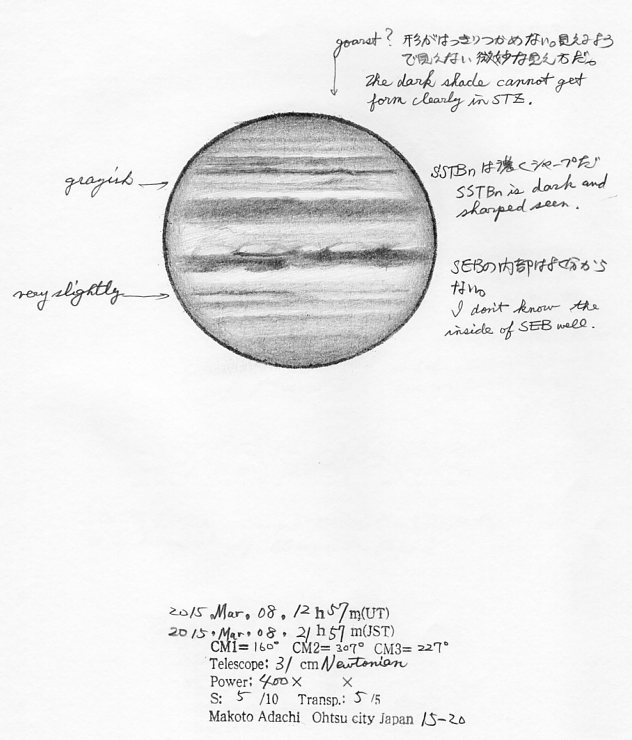 goarst? 形がはっきりつかめない。見えるよう
で見えない微妙な見え方だ。
The dark shade cannot get
form clearly in STZ.
grayish
SSTBnは濃くシャープだ
SSTBn is dark and
sharped seen.
SEBの内部はよく分から
ない。
very slightly
I don't know the
inside of SEB well.
2015, Mar, 08, 12 h 57 m(UT)
2015, Mar, 08, 21 h 57 m(JST)
CM1= 160° CM2= 307° CM3= 227°
Telescope: 31 cm Newtonian
Power: 400× ×
S: 5 /10 Transp.: 5 /5
Makoto Adachi Ohtsu city Japan 15-20